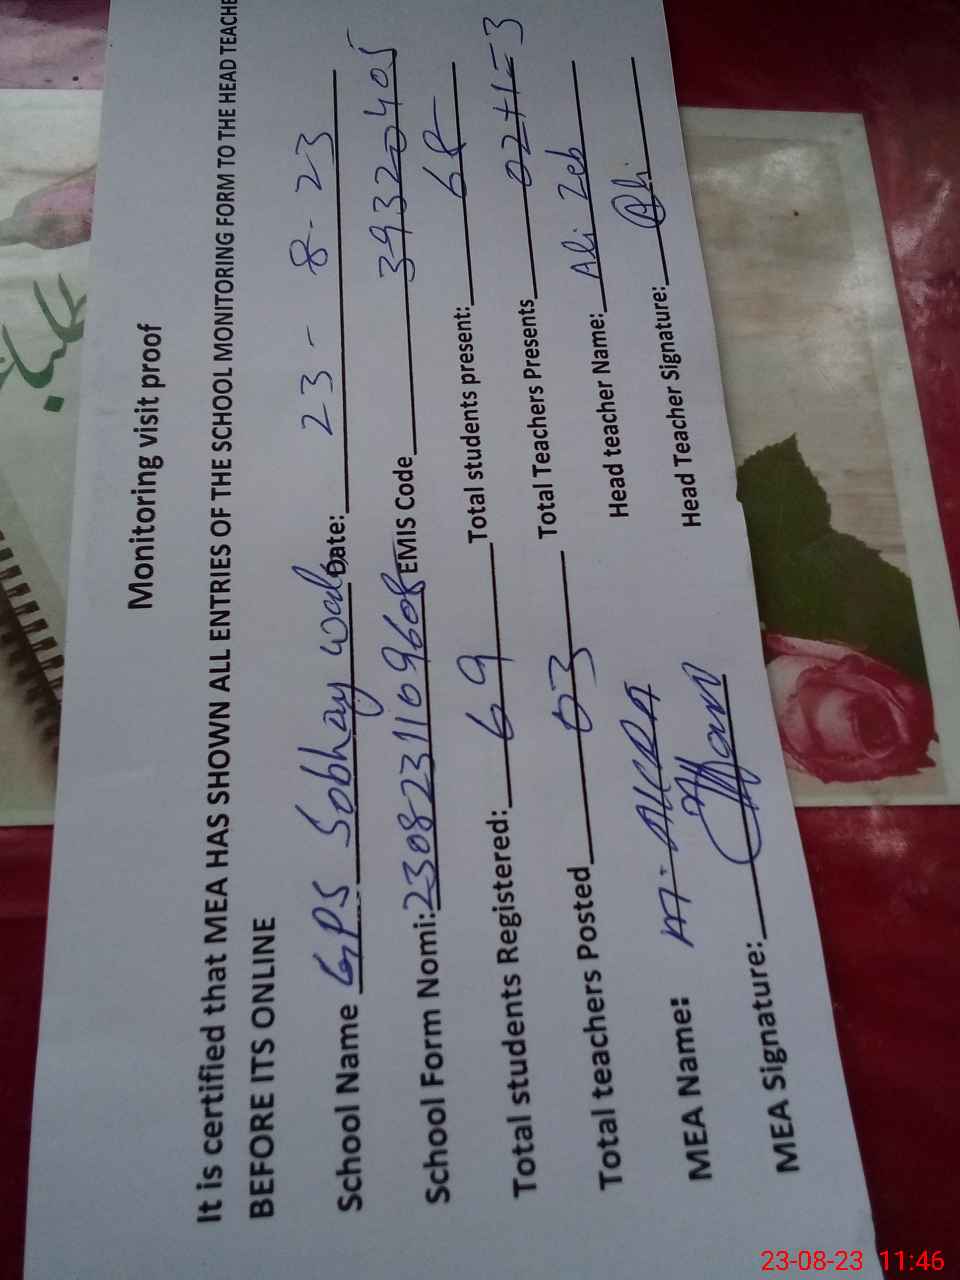 Monitoring visit proof
It is certified that MEA HAS SHOWN ALL ENTRIES OF THE SCHOOL MONITORING FORM TO THE HEAD TEACHE
BEFORE ITS ONLINE
School Name GPS Sobhay wada Date: 23 - 8 - 23
School Form Nomi: 2308231109608 EMIS Code 39320405
Total students Registered: 69 Total students present: 68
Total teachers Posted 03 Total Teachers Presents 02+1=3
MEA Name: M. AKRA Head teacher Name: Ali Zeb
MEA Signature: Head Teacher Signature: Ali
23-08-23 11:46